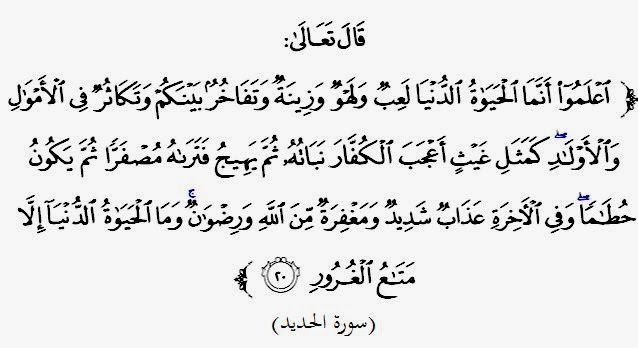 قَالَ تَعَالَىٰ:
﴿ ٱعْلَمُوٓا۟ أَنَّمَا ٱلْحَيَوٰةُ ٱلدُّنْيَا لَعِبٌ وَلَهْوٌ وَزِينَةٌ وَتَفَاخُرٌۢ بَيْنَكُمْ وَتَكَاثُرٌ فِى ٱلْأَمْوَٰلِ
وَٱلْأَوْلَـٰدِ ۖ كَمَثَلِ غَيْثٍ أَعْجَبَ ٱلْكُفَّارَ نَبَاتُهُۥ ثُمَّ يَهِيجُ فَتَرَىٰهُ مُصْفَرًّا ثُمَّ يَكُونُ
حُطَـٰمًا ۖ وَفِى ٱلْـَٔاخِرَةِ عَذَابٌ شَدِيدٌ وَمَغْفِرَةٌ مِّنَ ٱللَّهِ وَرِضْوَٰنٌ ۚ وَمَا ٱلْحَيَوٰةُ ٱلدُّنْيَآ إِلَّا
مَتَـٰعُ ٱلْغُرُورِ ٢٠ ﴾
(سورة الحديد)